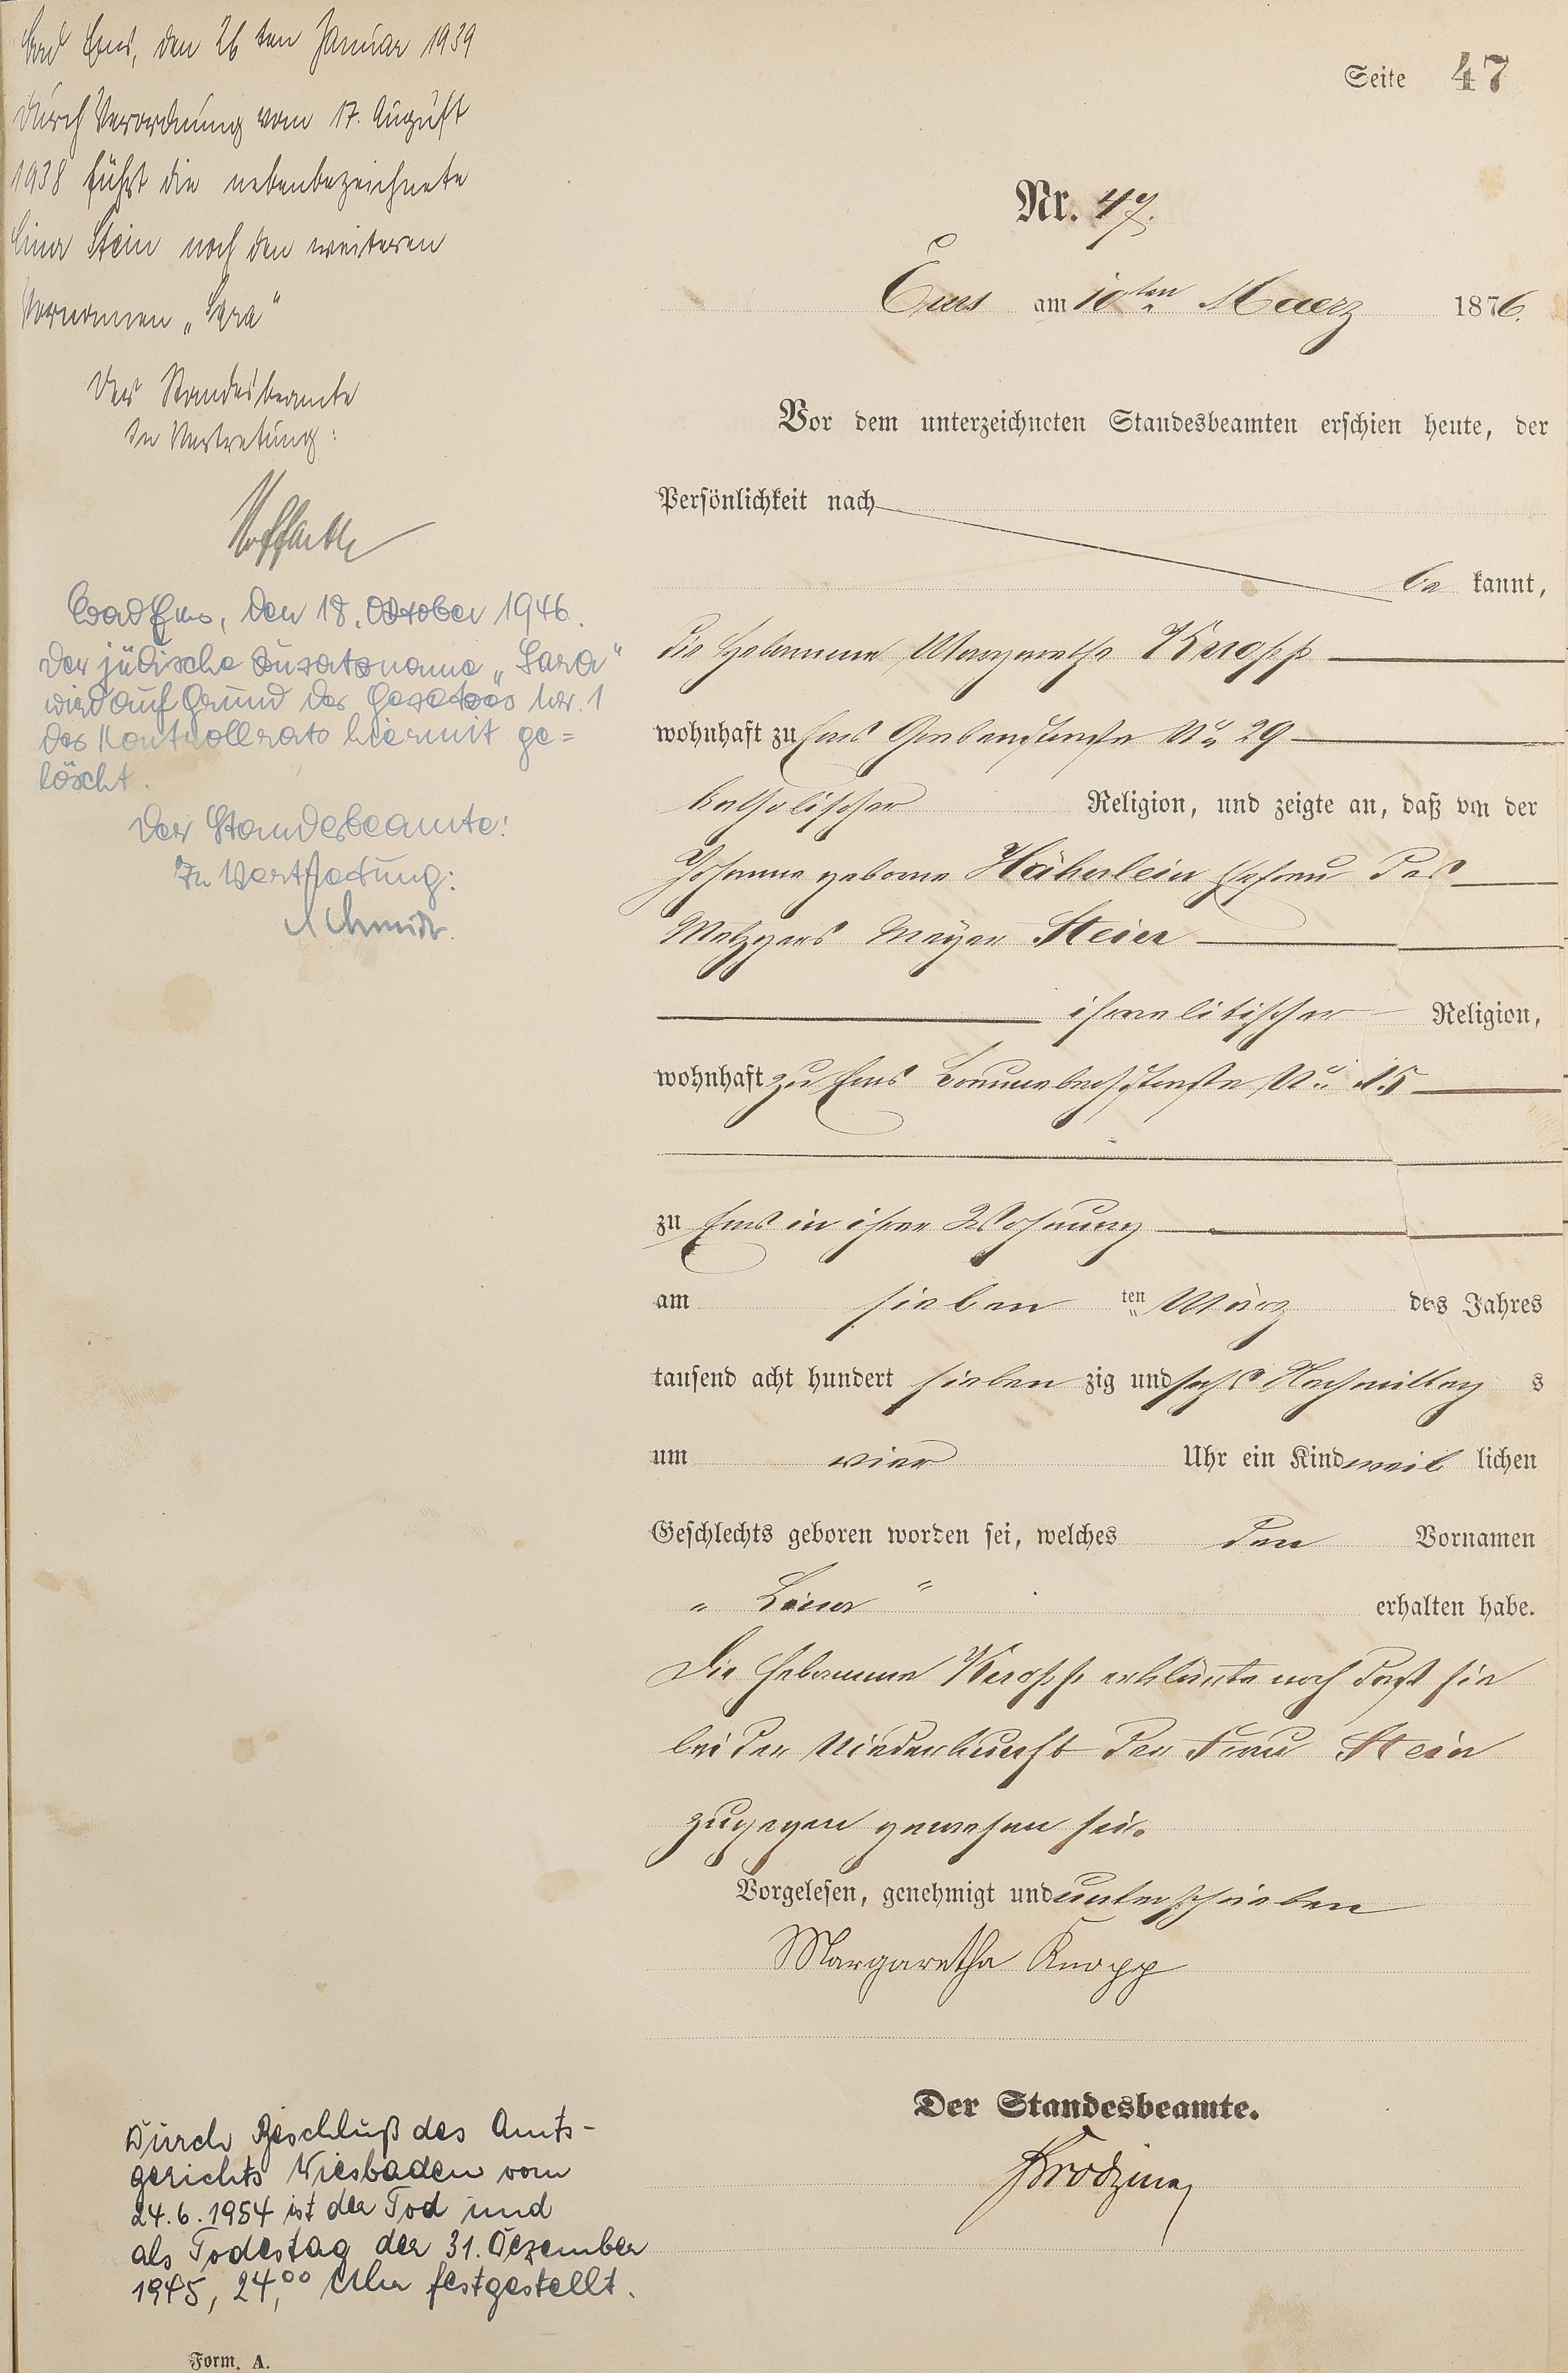 Bad Ems, den 26ten Januar 1939
Durch Verordnung vom 17. August
1938 führt die nebenbezeichnete
Lina Stein noch den weiteren
Vornamen „Sara"
Der Standesbeamte
In Vertretung:
Bad Ems, den 18. Oktober 1946.
Der jüdische Zusatzname „Sara"
wird auf Grund des Gesetzes Nr. 1
des Kontrollrats hiermit ge=
löscht.
Der Standesbeamte:
In Vertretung:
Schmidt
Seite 47
Nr. 47.
Ems am 10ten Maerz 1876.
Vor dem unterzeichneten Standesbeamten erschien heute, der
Persönlichkeit nach
be kannt,
die Hebamme Margaretha Knopp
wohnhaft zu Ems Grabenstraße No 29
katholischer Religion, und zeigte an, daß von der
Johanna geborne Häherlein Ehefrau des
Metzgers Mayer Stein
israelitischer Religion,
wohnhaft zu Ems No 15
zu Ems in ihrer Wohnung
am sieben ten März des Jahres
tausend acht hundert sieben zig und sechs Nachmittag s
um vier Uhr ein Kind weib lichen
Geschlechts geboren worden sei, welches den Vornamen
„ Lina " erhalten habe.
Die Hebamme Knopp erklärte noch daß sie
bei der Niederkunft der Frau Stein
zugegen gewesen sei.
Vorgelesen, genehmigt und unterschrieben
Margaretha Knopp
Der Standesbeamte.
Durch Beschluß des Amts-
gerichts Wiesbaden vom
24.6.1954 ist der Tod und
als Todestag der 31. Dezember
1945, 24,00 Uhr festgestellt.
Form. A.